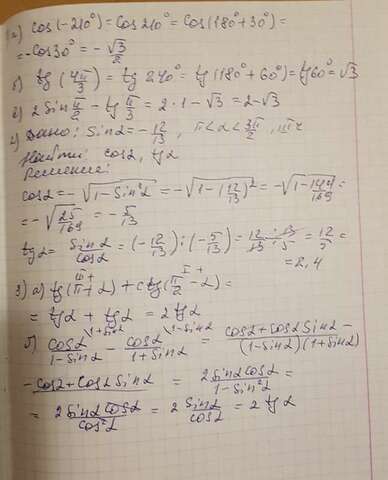 а) cos(-210°) = cos 210° = cos(180°+30°) =
= -cos30° = -√3/2
б) tg(4π/3) = tg 240° = tg(180°+60°) = tg60° = √3
в) 2sin π/2 - tg π/3 = 2·1 - √3 = 2-√3
2) Дано: sinα = -12/13, π<α<3π/2, III ч
Найти: cosα, tgα
Решение:
cosα = -√(1-sin²α) = -√(1-(12/13)²) = -√(1-144/169) =
= -√(25/169) = -5/13
tgα = sinα/cosα = (-12/13):(-5/13) = (12·13)/(13·5) = 12/5 =
= 2,4
3) а) tg(π+α) + ctg(π/2-α) =
III+ I+
= tgα + tgα = 2tgα
б) cosα/(1-sinα) - cosα/(1+sinα) = (cosα+cosα sinα - / (1-sinα)(1+sinα)
1+sinα 1-sinα
-cosα+cosα sinα = 2sinα cosα/(1-sin²α) =
= 2sinα cosα/cos²α = 2 sinα/cosα = 2tgα